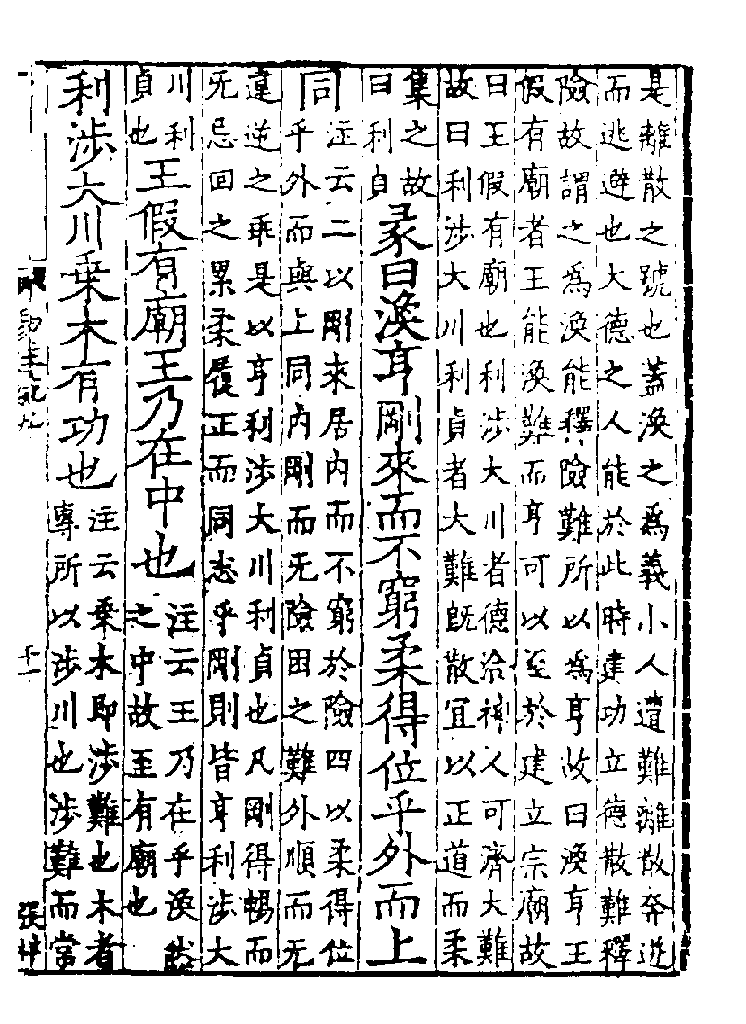 是離散之號也蓋渙之為義小人遭難離散奔迸
而逃避也大德之人能於此時建功立德散難釋
險故謂之為渙能釋險難所以為亨故曰渙亨王
假有廟者王能渙難而亨可以至於建立宗廟故
曰王假有廟也利涉大川者德洽神人可濟大難
故曰利涉大川利貞者大難旣散宜以正道而柔
集之故
曰利貞
彖曰渙亨剛來而不窮柔得位乎外而上
同
注云二以剛來居内而不窮於險四以柔得位
乎外而與上同内剛而无險困之難外順而无
違逆之乖是以亨利涉大川利貞也凡剛得暢而
无忌回之累柔履正而同志乎剛則皆亨利涉大
川利
貞也
王假有廟王乃在中也
注云王乃在乎渙然
之中故至有廟也
利涉大川乗木有功也
注云乗木即涉難也木者
專所以涉川也涉難而常
十一